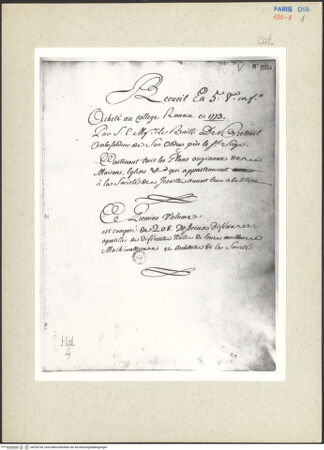 PARIS DIS.
100-1 1
Recueil En 5. V. in f.o
Acheté au college Romain en 1773.
Par S. E. Mgr. le Bailli De Breteuil
Ambassadeur de Son Ordre près le St. Siege.
Contenant tous les Plans originaux de
Maisons, Eglises & qui appartenoient
à la Société de Jesuites avant leur
Ce Premier Volume
est composé de 208. Desseins Differens,
apostillés de differentes Notes de leurs meilleurs
Mathématiciens et Architectes de la Société
Hd
4